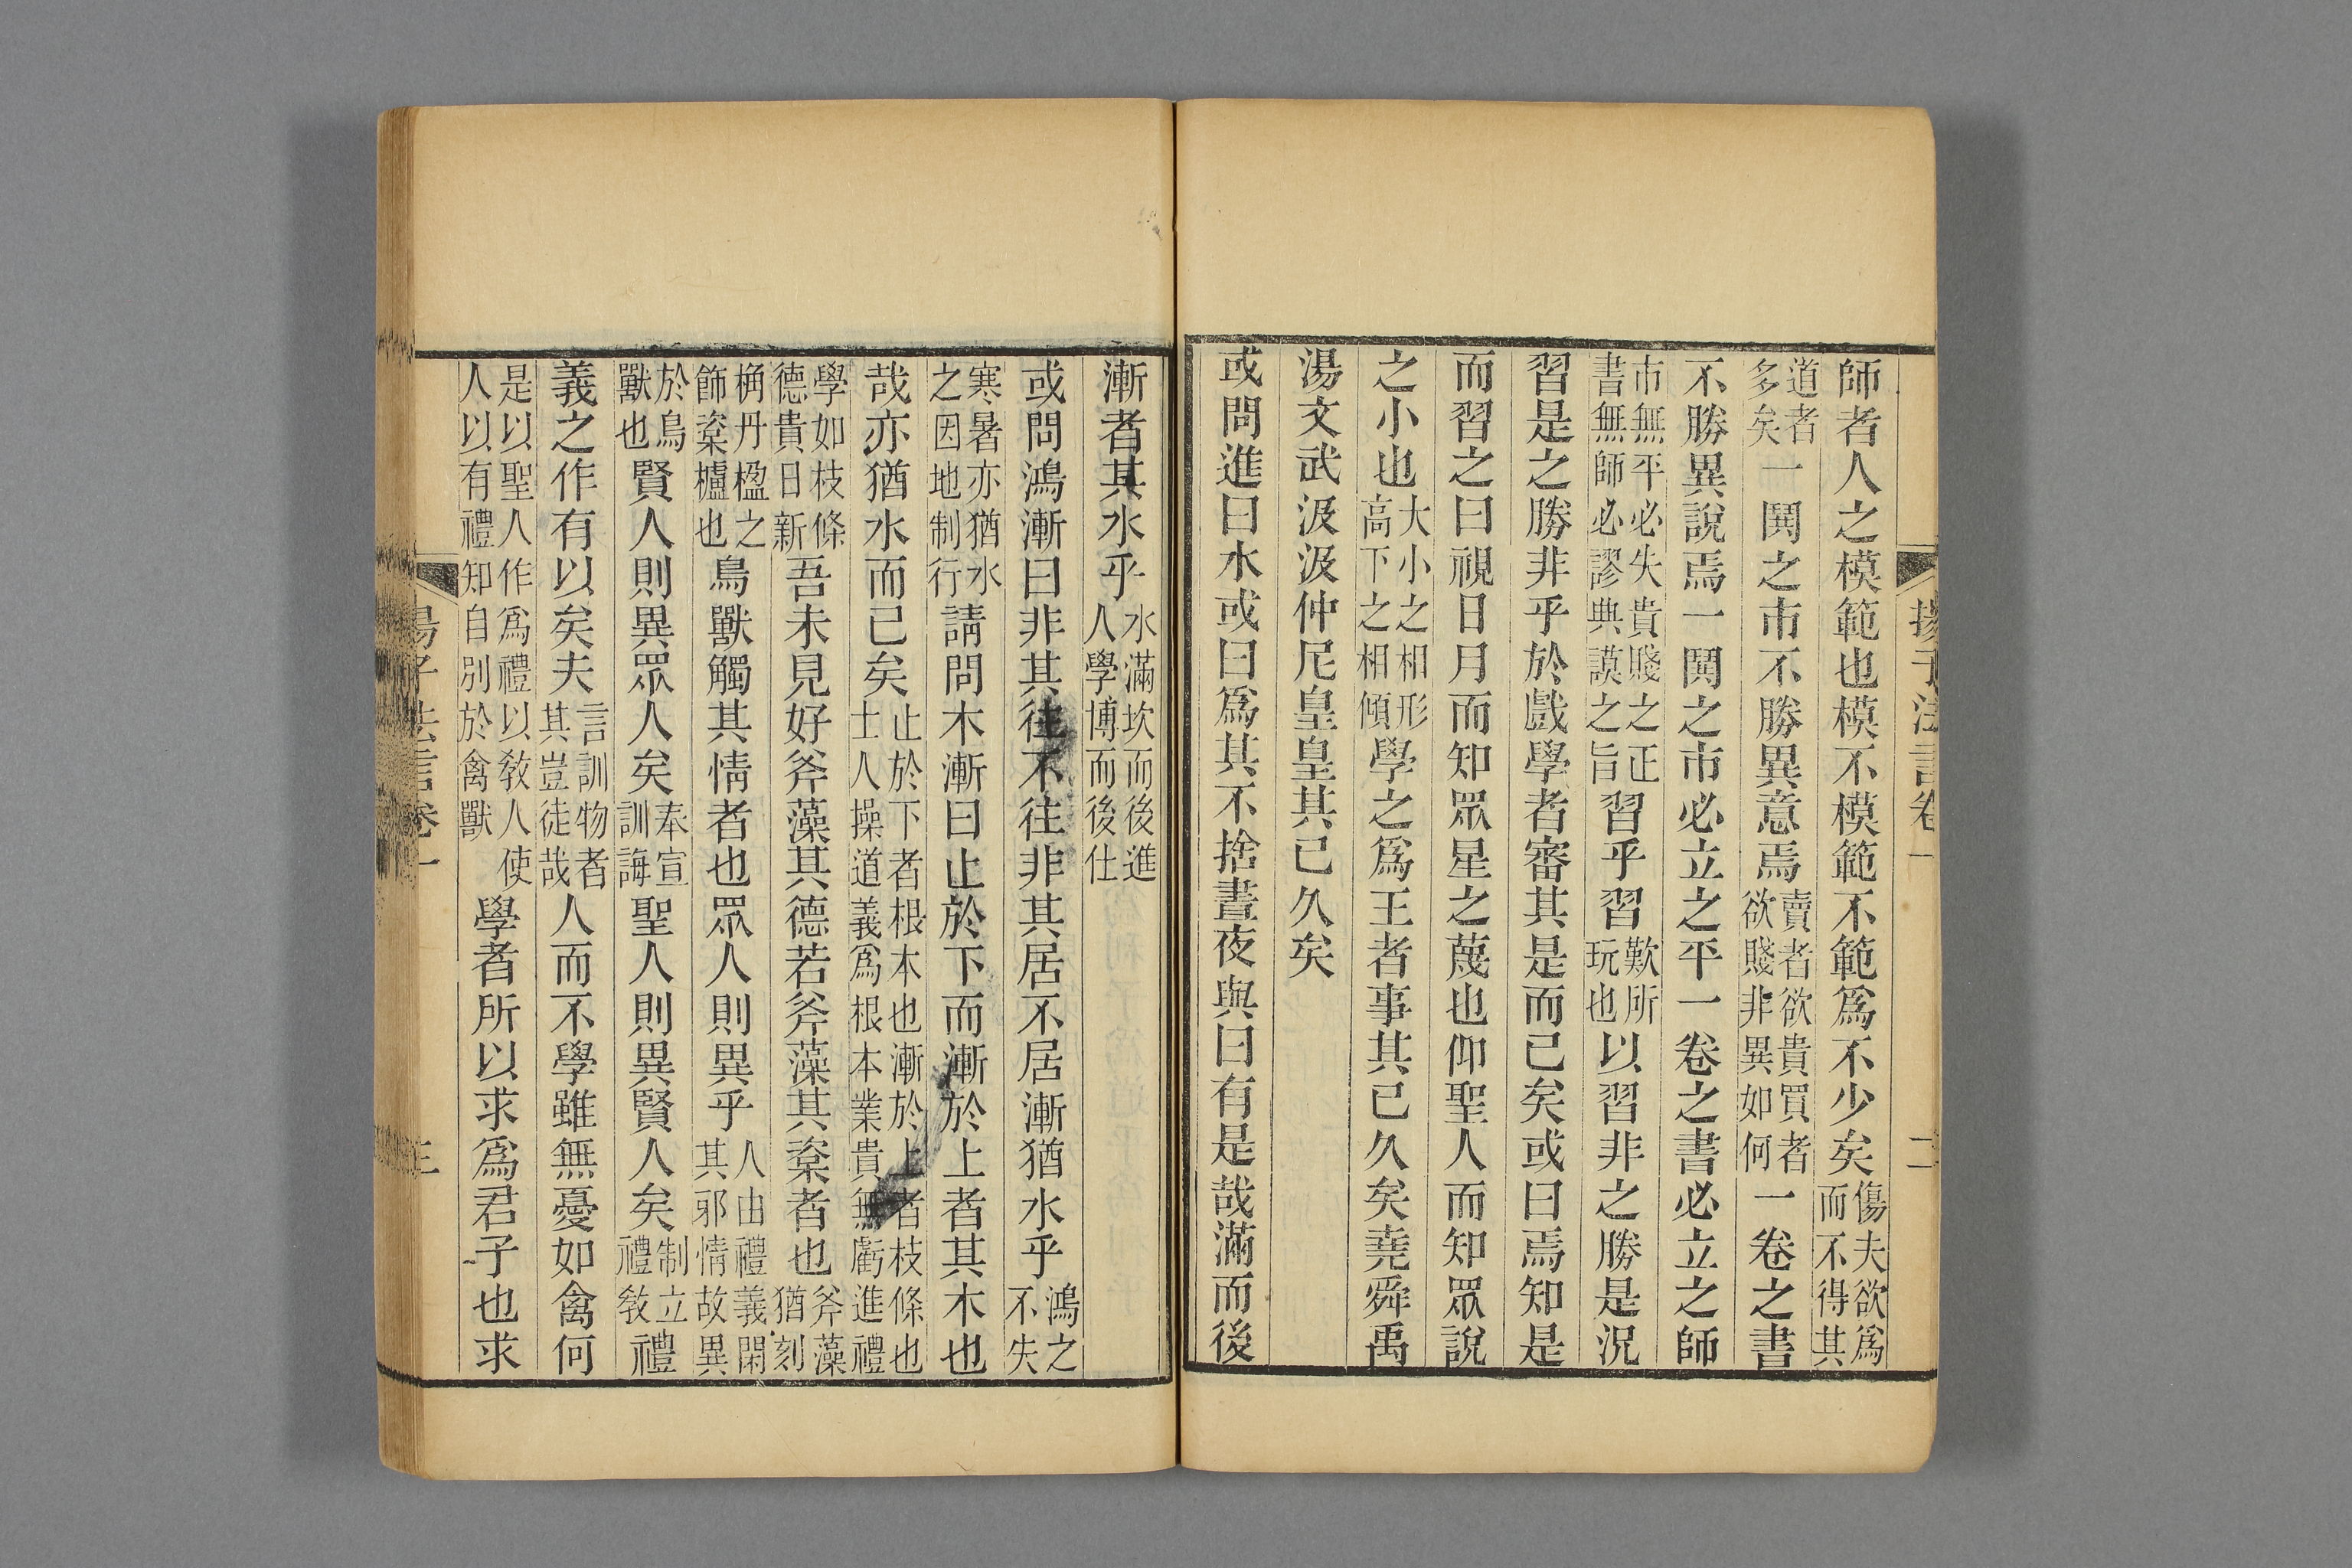 揚子法言卷一 二
師者人之模範也模不模範不範爲不少矣傷夫欲爲而不得其
道者多矣一鬨之市不勝異意焉賣者欲貴買者欲賤非異如何一卷之書
不勝異說焉一鬨之市必立之平一卷之書必立之師
市無平必失貴賤之正書無師必謬典謨之旨習乎習歎所玩也以習非之勝是況
習是之勝非乎於戲學者審其是而已矣或曰焉知是
而習之曰視日月而知眾星之蔑也仰聖人而知眾說
之小也大小之相形高下之相傾學之爲王者事其已久矣堯舜禹
湯文武汲汲仲尼皇皇其已久矣
或問進曰水或曰爲其不捨晝夜與曰有是哉滿而後
漸者其水乎水滿坎而後進人學博而後仕
或問鴻漸曰非其往不往非其居不居漸猶水乎鴻之不失
寒暑亦猶水之因地制行請問木漸曰止於下而漸於上者其木也
哉亦猶水而已矣止於下者根本也漸於上者枝條也士人操道義爲根本業貴無虧進禮
學如枝條德貴日新吾未見好斧藻其德若斧藻其楶者也斧藻猶刻
桷丹楹之飾楶櫨也鳥獸觸其情者也眾人則異乎人由禮義閑其邪情故異
於鳥獸也賢人則異眾人矣奉宣訓誨聖人則異賢人矣制立禮敎禮
義之作有以矣夫言訓物者其豈徒哉人而不學雖無憂如禽何
是以聖人作爲禮以敎人使人以有禮知自別於禽獸學者所以求爲君子也求
揚子法言卷一 三